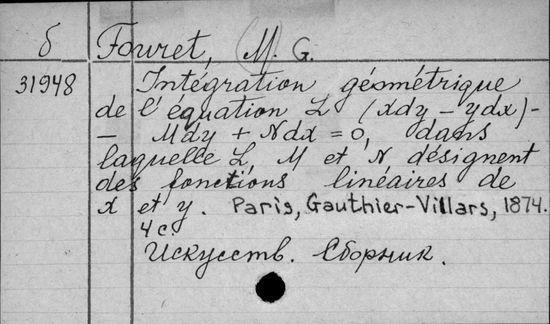 б Fouret, (M.) G.
31948 Intégration géométrique
de l'équation L (xdy – ydx) -
– Mdy + Ndx = 0, dans
laquelle L, M et N désignent
des fonctions linéaires de
x et y. Paris, Gauthier-Villars, 1874.
4 с.
Искусств. Сборник.